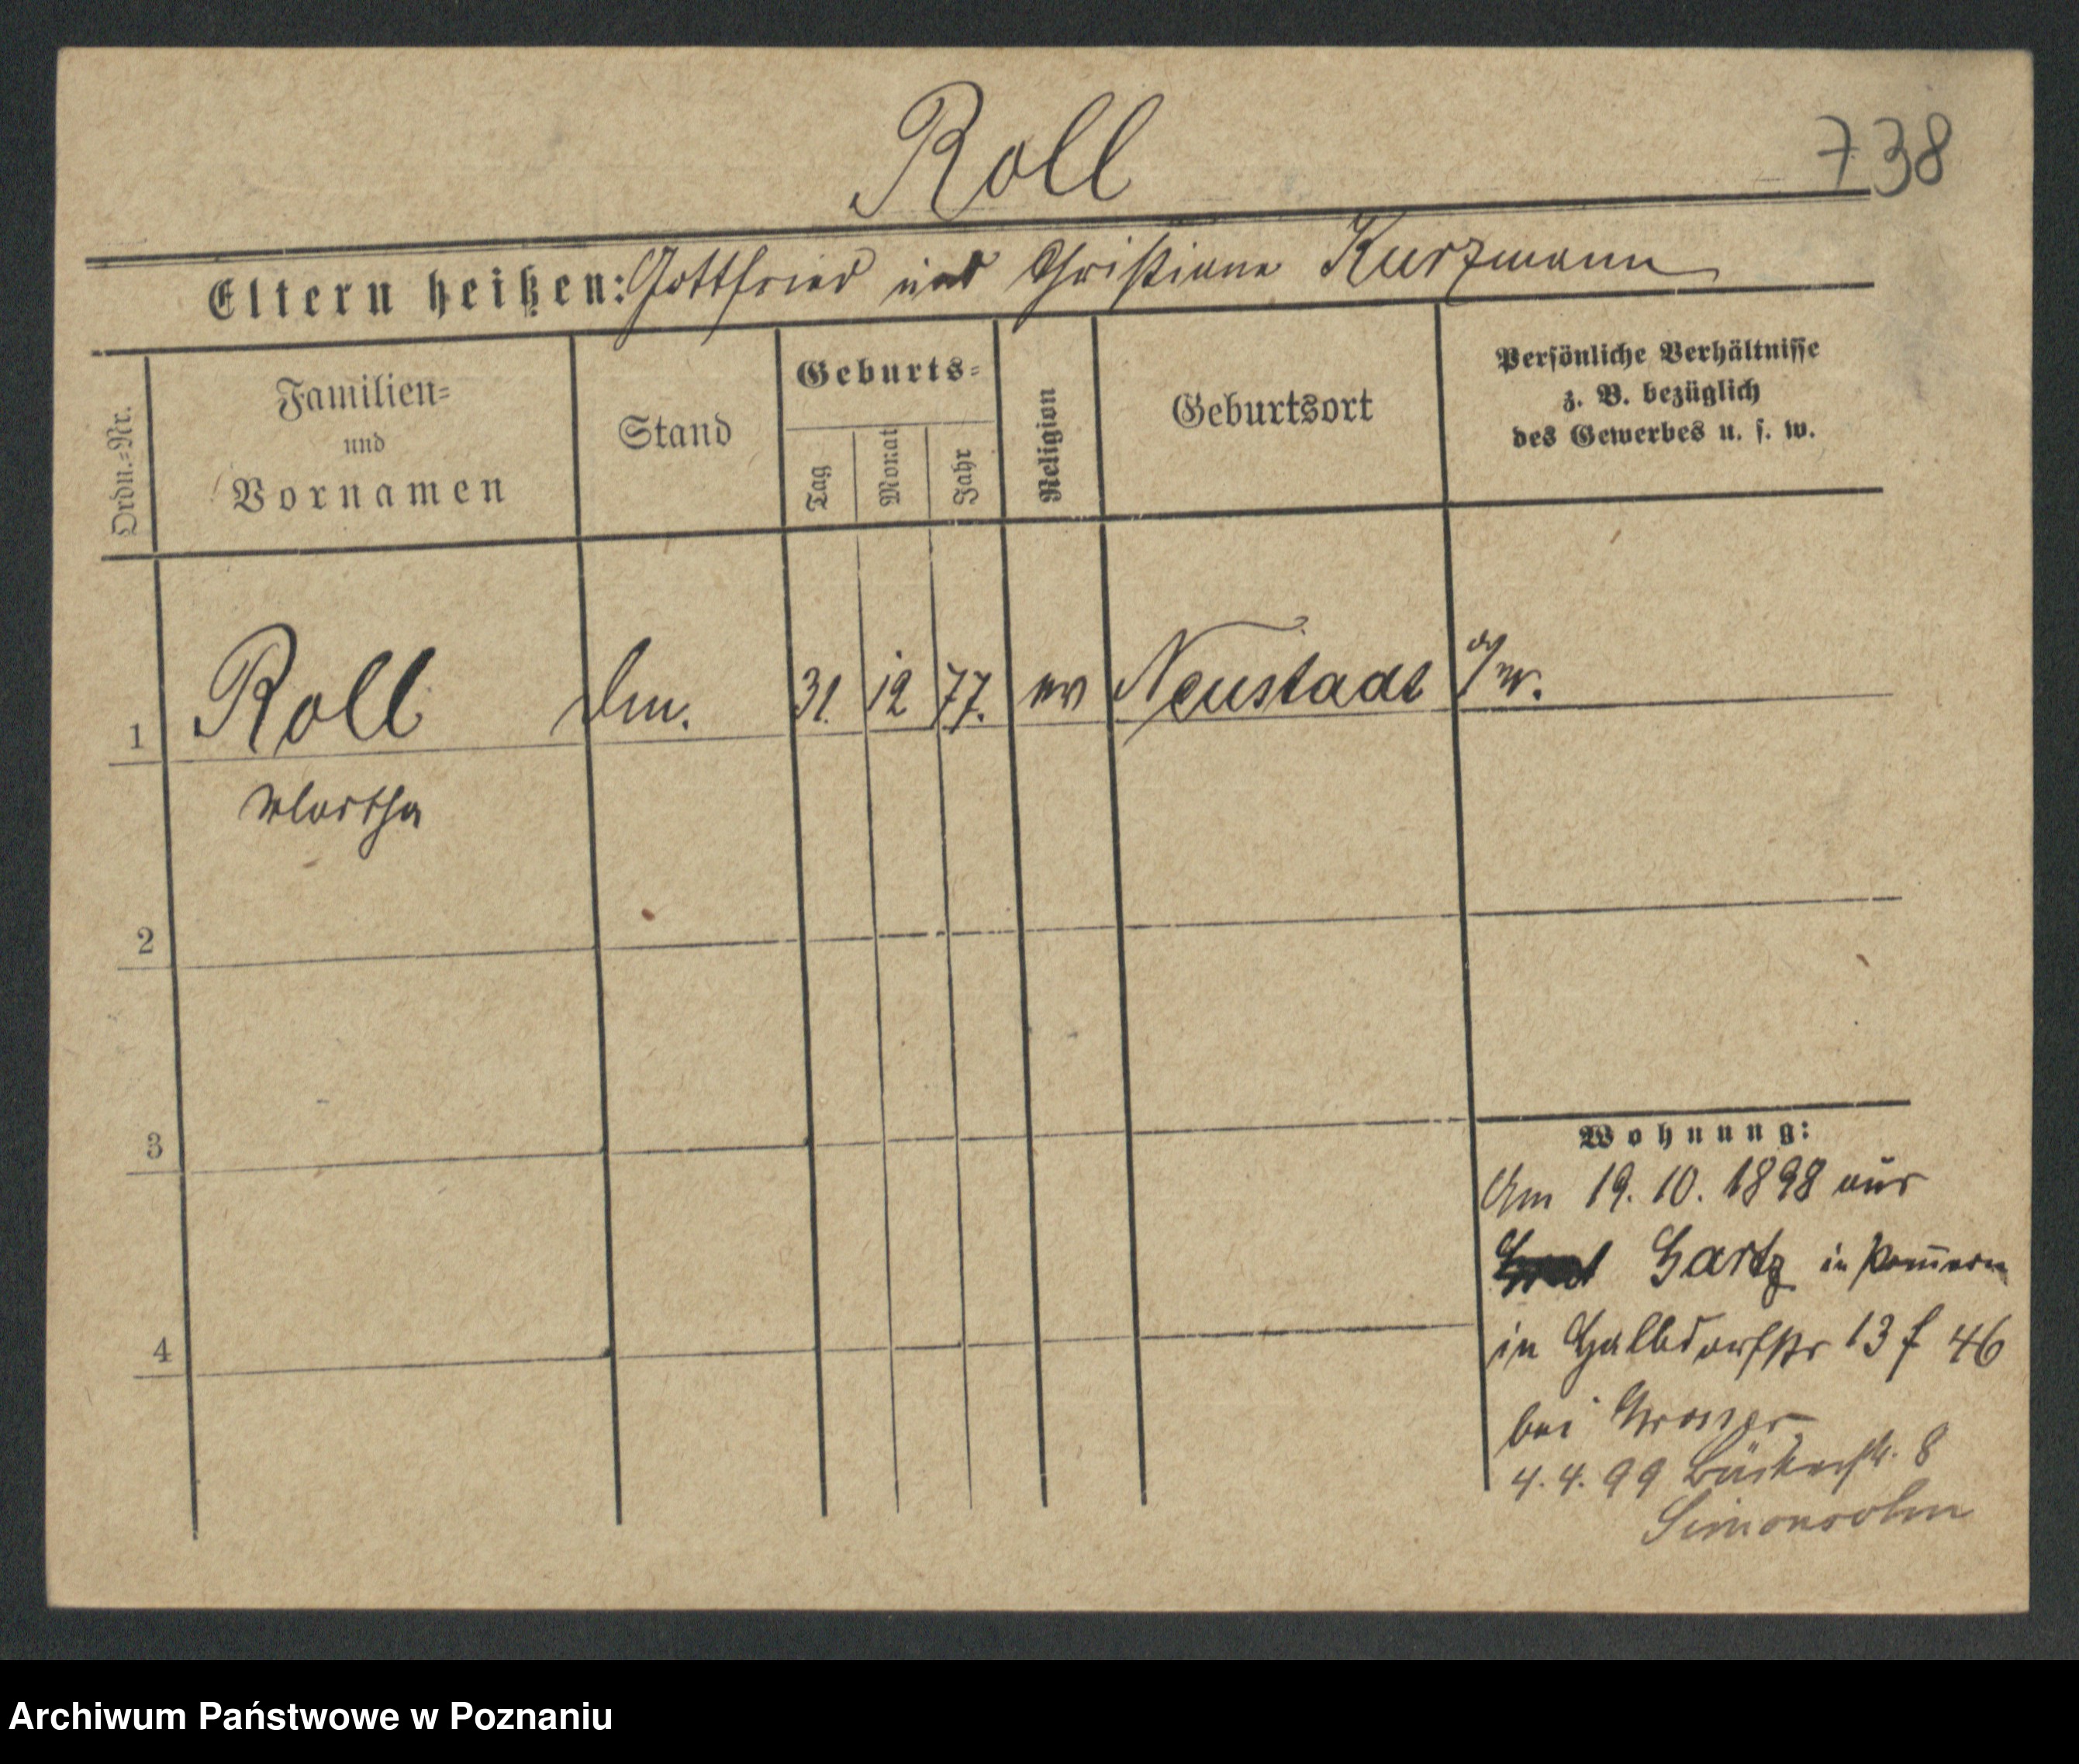 Roll
738
Eltern heißen: Gottfried und Christiane Kurzmann
Ordn.-Nr.
Familien-
und
Vornamen
Stand
Geburts-
Tag
Monat
Jahr
Religion
Geburtsort
Persönliche Verhältnisse
z. B. bezüglich
des Gewerbes u. s. w.
1 Roll 31. 12 77. ev Neustadt a/W.
Martha
2
3
4
Wohnung:
Am 19. 10. 1898 aus
Gartz in Pom̄ern
in Halbdorfstr 13 f 46
bei
4. 4. 99 Bäckerstr. 8
Simonsohn
Archiwum Państwowe w Poznaniu